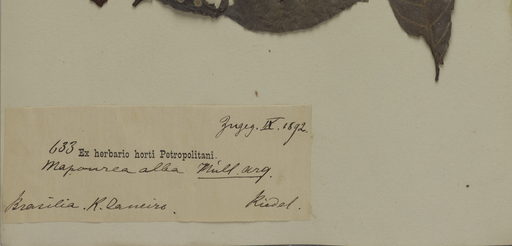 Zugeg. IX. 1892.
633 Ex herbario horti Petropolitani.
Mapourea alba Müll arg.
Brasilia. R. Janeiro. Riedel.